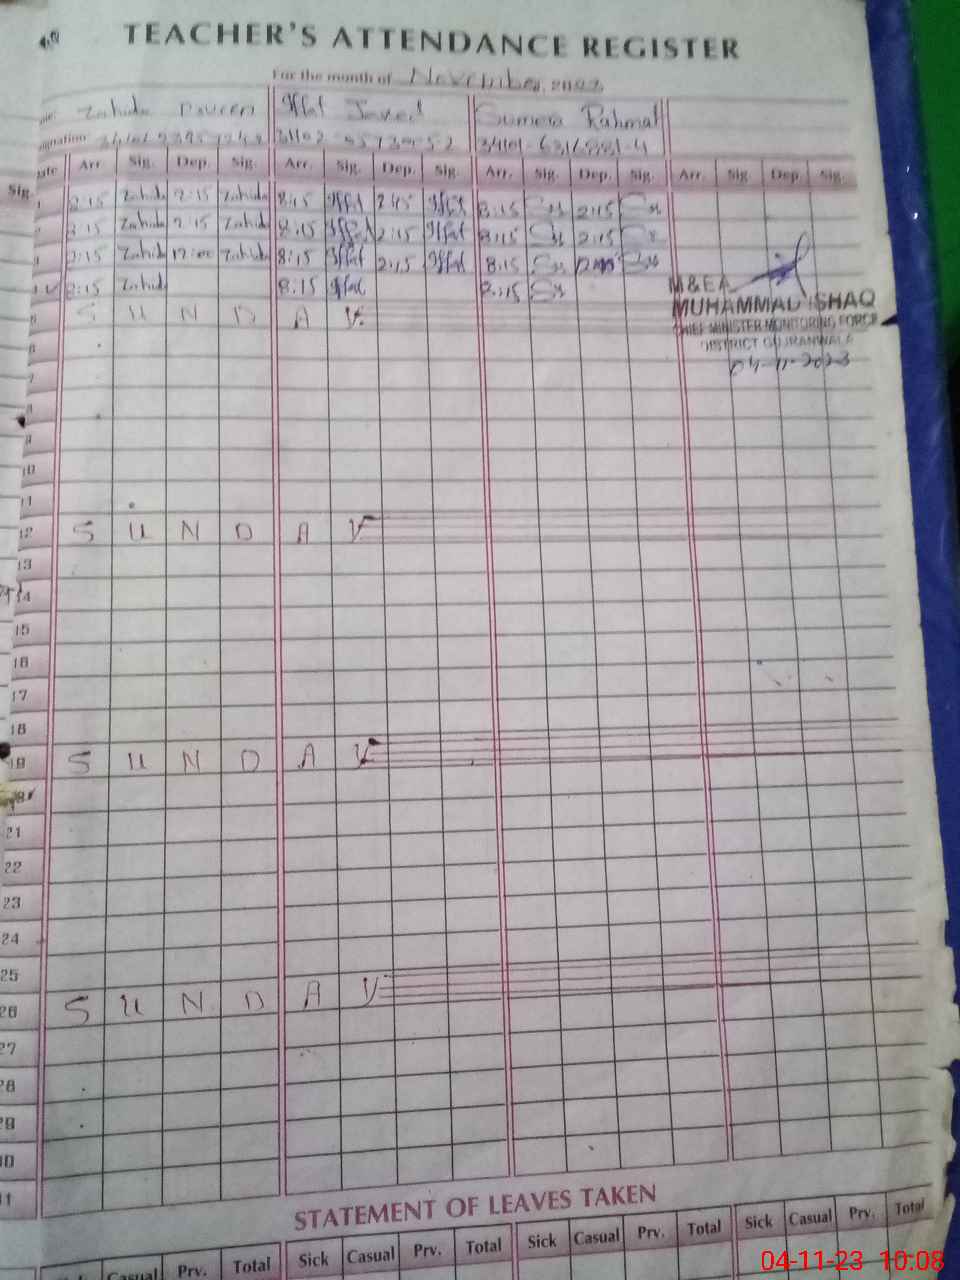 TEACHER'S ATTENDANCE REGISTER
For the month of November, 202
Zahida Parveen Iffat Javed Sumera Rahmat
34101-6316881-4
Arr. Sig. Dep. Sig. Arr. Sig. Dep. Sig. Arr. Sig. Dep. Sig. Arr. Sig. Dep. Sig.
Sig.
1 8:15 Zahida 2:15 Zahida 8:15 Iffat 2:15 Iffat 8:15 2:15
2 8:15 Zahida 2:15 Zahida 8:15 Iffat 2:15 Iffat 8:15 2:15
3 8:15 Zahida 12:00 Zahida 8:15 Iffat 2:15 Iffat 8:15
8:15 Zahida 8:15 Iffat 8:15
M&EA
MUHAMMAD ISHAQ
CHIEF MINISTER MONITORING FORCE
DISTRICT GUJRANWALA
04-11-2023
5 S U N D A Y
6
7
8
9
10
11
12 S U N D A Y
13
14
15
16
17
18
19 S U N D A Y
21
22
23
24
25
26 S U N D A Y
27
28
29
30
31
STATEMENT OF LEAVES TAKEN
Sick Casual Prv. Total Sick Casual Prv. Total Sick Casual Prv. Total Sick Casual Prv. Total
04-11-23 10:08